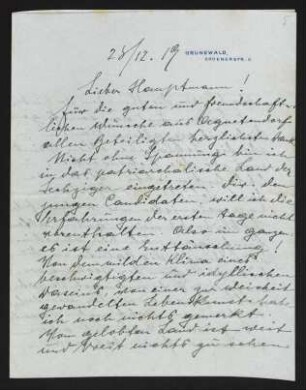 28/12. 19 GRUNEWALD,
Lieber Hauptmann!
Für die guten und freundschaft-
lichen Wünsche aus Agnetendorf
allen Beteiligten herzlichsten Dank
Nicht ohne Spannung bin ich
in das patriarchalische Land der
Sechziger eingetreten. Dir, dem
jungen Candidaten, will ich die
Erfahrungen der ersten Tage nicht
vorenthalten. Also im ganzen
es ist eine Enttäuschung!
Von dem milden Klima eines
beschwigtigten und idyllischen
Daseins, von einer zu Weisheit
gewandelten Lebenskunst hab
ich noch nichts gemerkt.
Vom gelobten Land ist weit
und breit nichts zu sehen